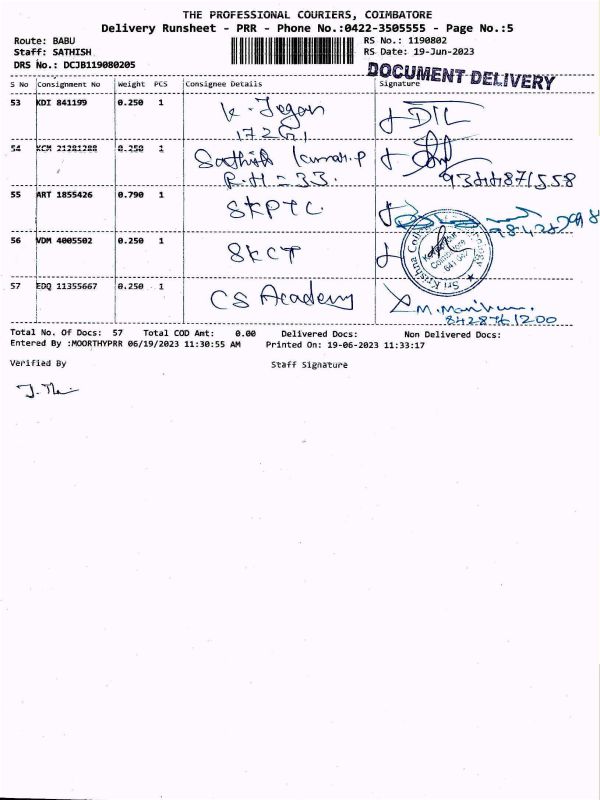 THE PROFESSIONAL COURIERS, COIMBATORE
Delivery Runsheet - PRR - Phone No.:0422-3505555 - Page No.:5
Route: BABU
RS No.: 1190802
Staff: SATHISH
RS Date: 19-Jun-2023
DRS No.: DCJB119080205
DOCUMENT DELIVERY
S No Consignment No Weight PCS Consignee Details Signature
53 KDI 841199 0.250 1 K. Jegan
17261
54 KCM 21281288 0.250 1 Sathish Kumar.P
R.H = 33.
9344871558
55 ART 1855426 0.790 1 SKPTC.
56 VDM 4005502 0.250 1 SKCT
Sri Krishna
Coimbatore
641 042
57 EDQ 11355667 0.250 1 CS Academy
8428761200
Total No. Of Docs: 57 Total COD Amt: 0.00 Delivered Docs: Non Delivered Docs:
Entered By :MOORTHYPRR 06/19/2023 11:30:55 AM Printed On: 19-06-2023 11:33:17
Verified By Staff Signature